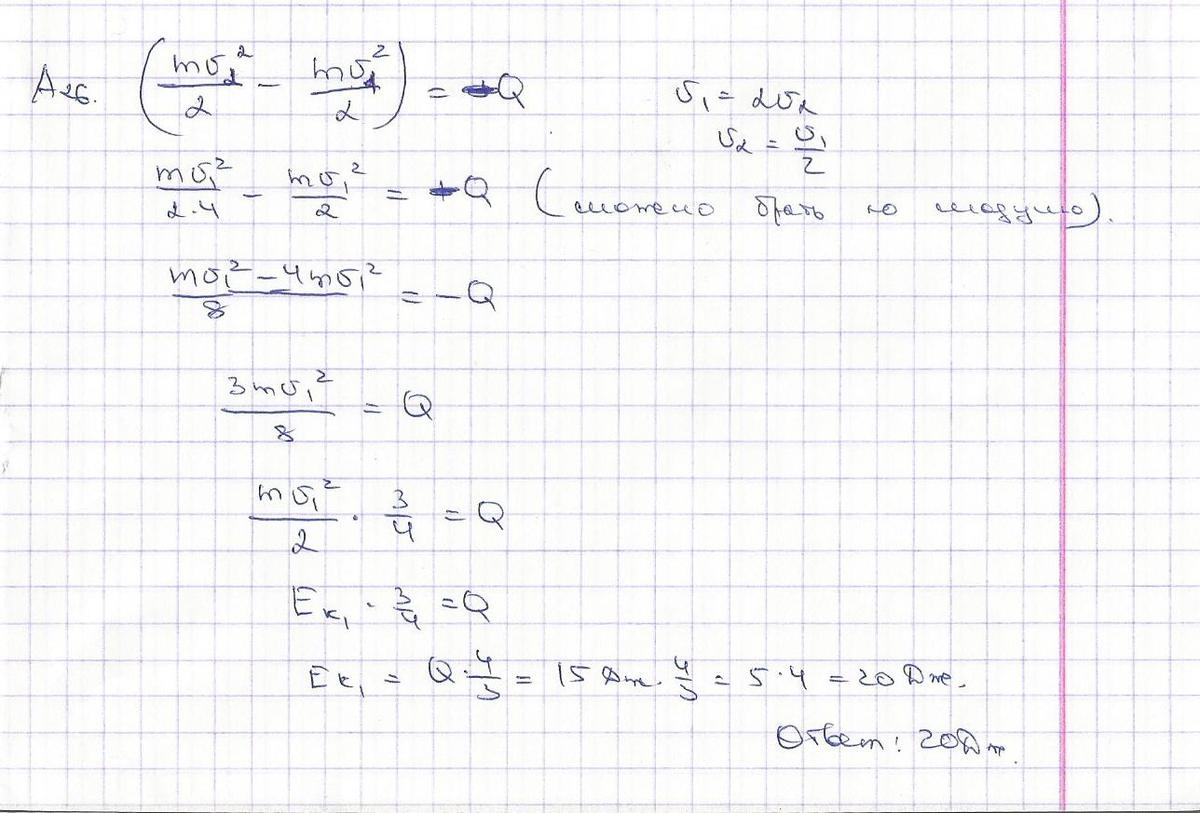 А26. (mv₂²/2 − mv₁²/2) = −Q
v₁ = 2v₂
v₂ = v₁/2
mv₁²/2·4 − mv₁²/2 = −Q (можно брать по модулю).
mv₁² − 4mv₁²/8 = −Q
3mv₁²/8 = Q
mv₁²/2 · 3/4 = Q
Eк₁ · 3/4 = Q
Eк₁ = Q · 4/3 = 15 Дж · 4/3 = 5·4 = 20 Дж.
Ответ: 20Дж.